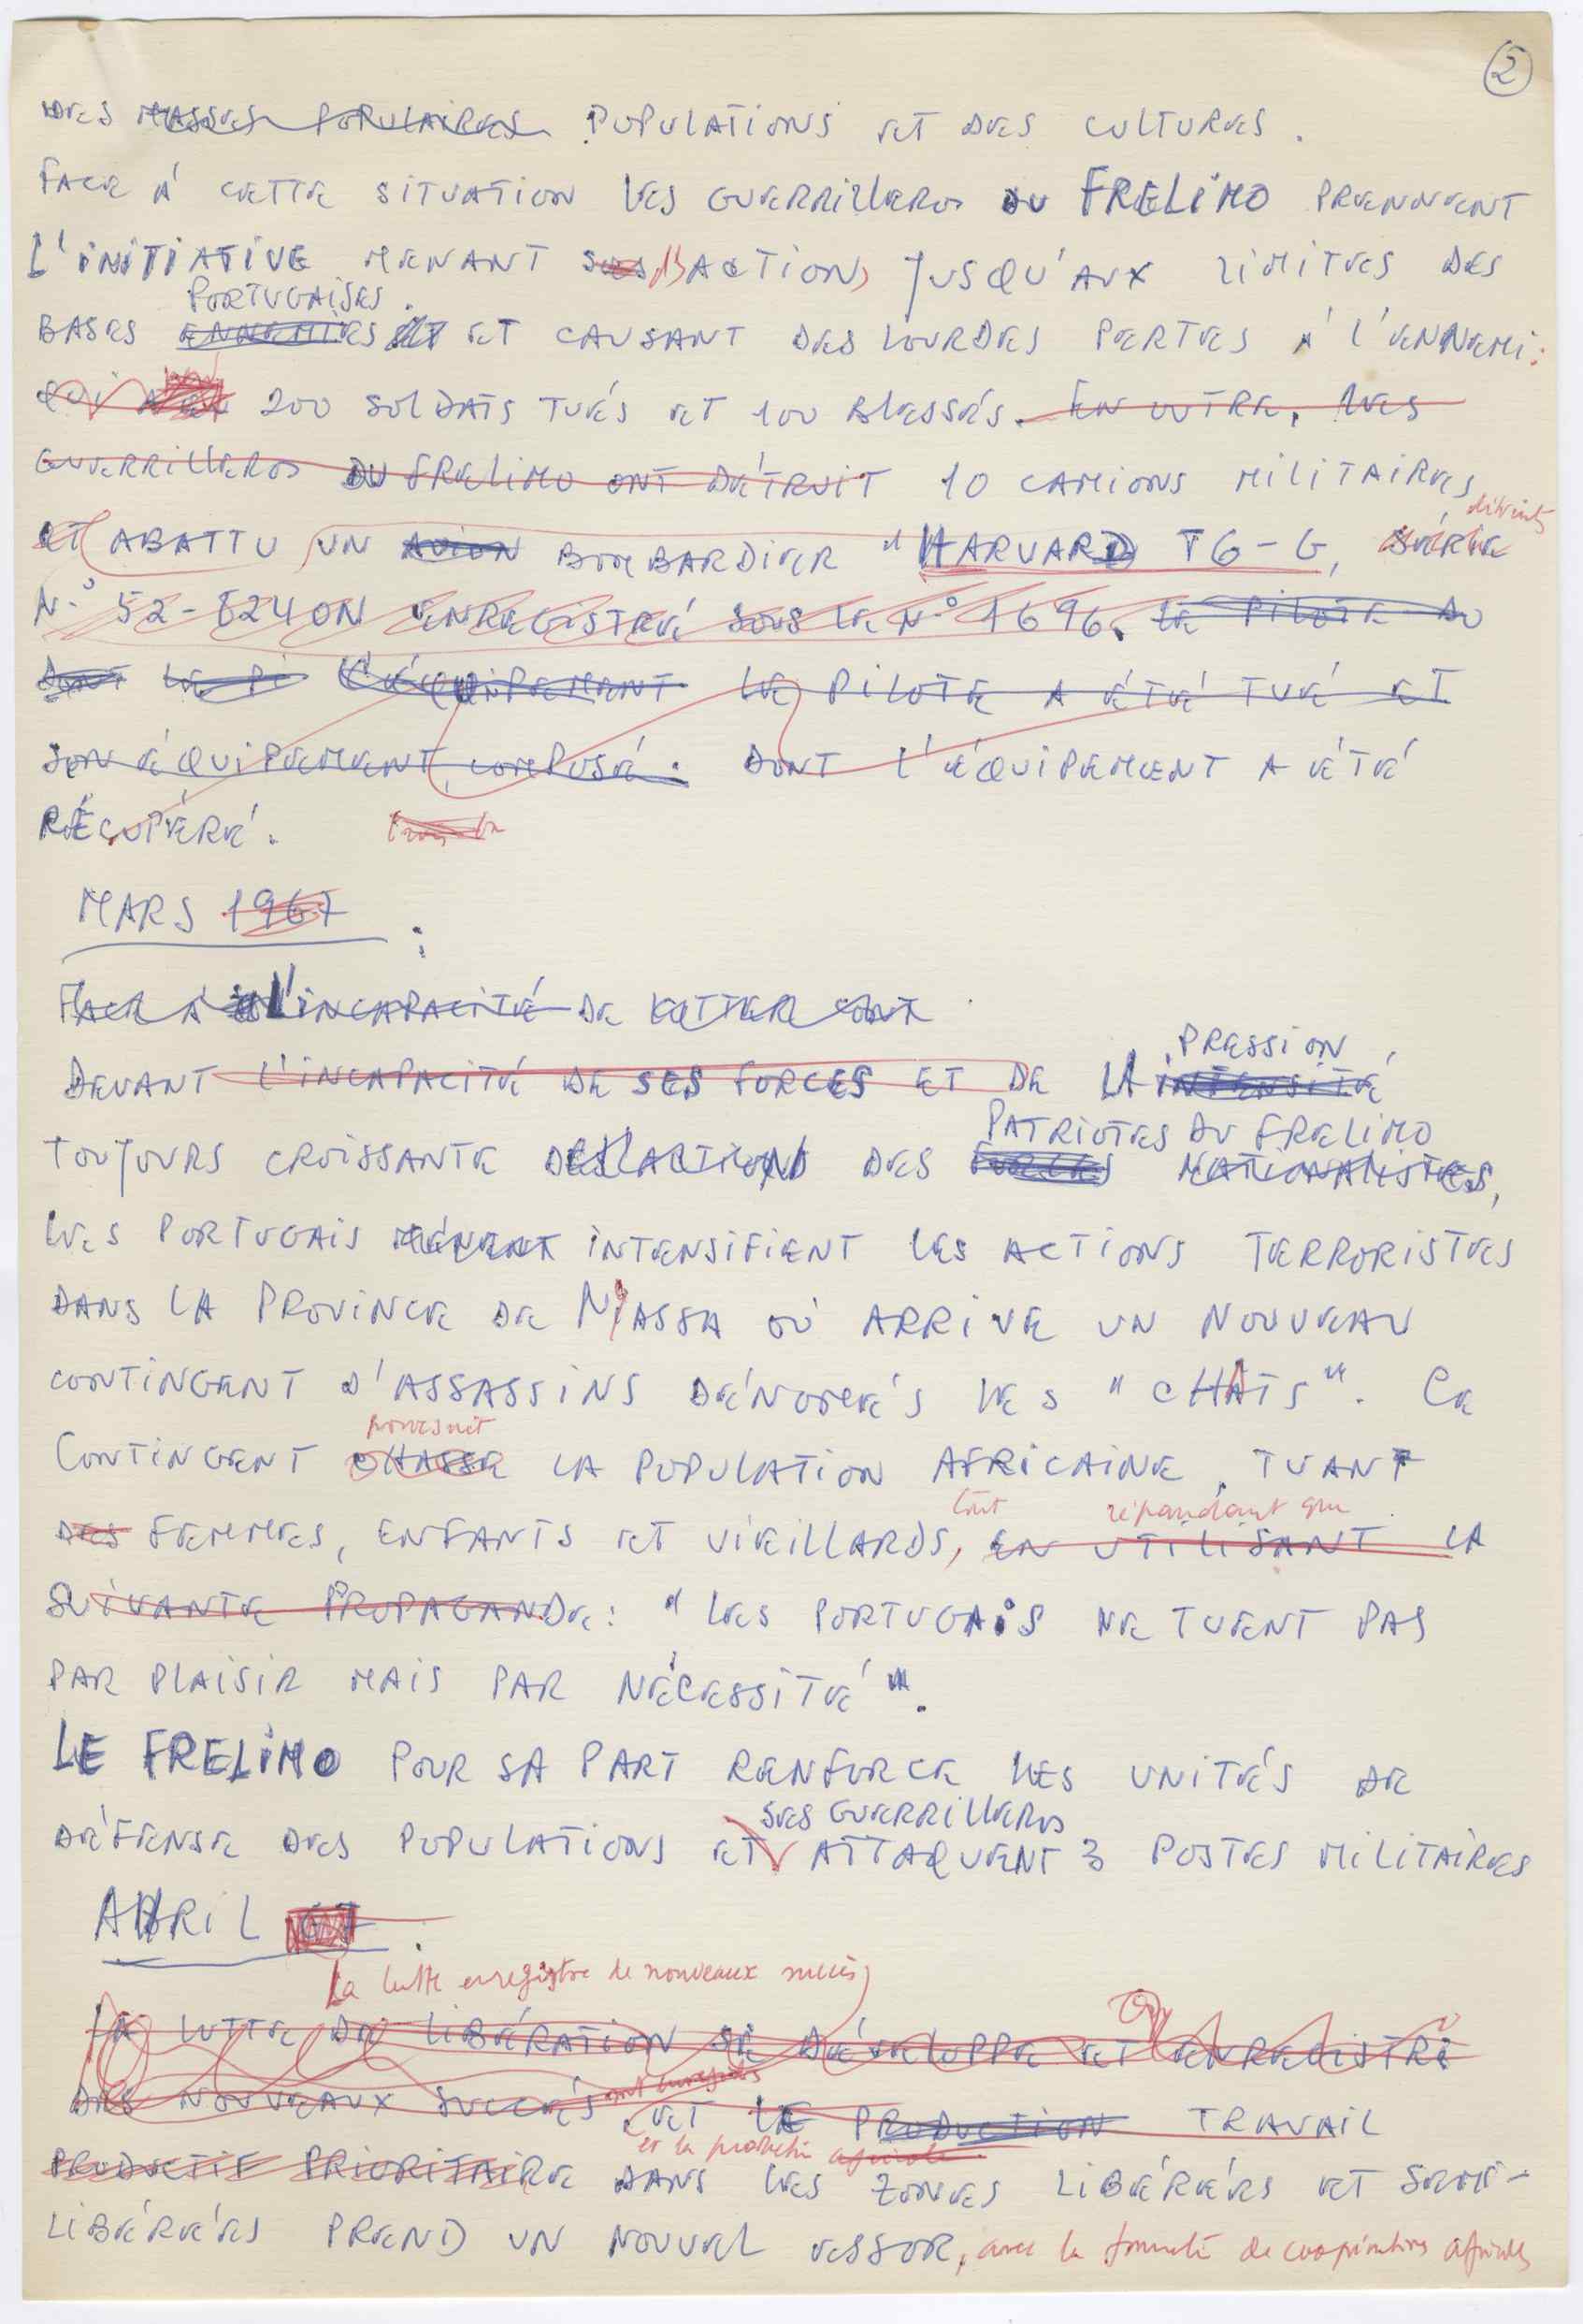 2
DES MASSES POPULAIRES POPULATIONS ET DES CULTURES.
FACE À CETTE SITUATION LES GUERRILLEROS DU FRELIMO PRENNENT
L'INITIATIVE MENANT SES ACTIONS JUSQU'AUX LIMITES DES
PORTUGAISES
BASES ENNEMIES ET CAUSANT DES LOURDES PERTES À L'ENNEMI:
QUI A 200 SOLDATS TUÉS ET 100 BLESSÉS. EN OUTRE, LES
GUERRILLEROS DU FRELIMO ONT DÉTRUIT 10 CAMIONS MILITAIRES,
détruits
ET ABATTU UN AVION BOMBARDIER "HARVARD T6-G, SÉRIE
N.° 52-8240N ENREGISTRÉ SOUS LE N° 1696. LE PILOTE DO
DONT LE PI L'ÉQUIPEMENT LE PILOTE A ÉTÉ TUÉ ET
SON ÉQUIPEMENT COMPOSÉ. DONT L'ÉQUIPEMENT A ÉTÉ
RÉCUPÉRÉ.
MARS 1967
FACE À L'INCAPACITÉ DE LUTTER CONT
PRESSION
DEVANT L'INCAPACITÉ DE SES FORCES ET DE LA INTENSITÉ
PATRIOTES DU FRELIMO
TOUJOURS CROISSANTE DES ACTIONS DES FORCES NATIONALISTES,
LES PORTUGAIS MÈNENT INTENSIFIENT LES ACTIONS TERRORISTES
DANS LA PROVINCE DE NIASSA OÙ ARRIVE UN NOUVEAU
CONTINGENT D'ASSASSINS DÉNOMMÉS LES "CHATS". CE
poursuit
CONTINGENT CHASSE LA POPULATION AFRICAINE, TUANT
tout répandant que
DES FEMMES, ENFANTS ET VIEILLARDS, EN UTILISANT LA
SUIVANTE PROPAGANDE: "LES PORTUGAIS NE TUENT PAS
PAR PLAISIR MAIS PAR NÉCESSITÉ".
LE FRELIMO POUR SA PART RENFORCE LES UNITÉS DE
SES GUERRILLEROS
DÉFENSE DES POPULATIONS ET ATTAQUENT 3 POSTES MILITAIRES
AVRIL 67
La lutte enregistre de nouveaux succès
LA LUTTE DE LIBÉRATION SE DÉVELOPPE ET ENREGISTRE
DES NOUVEAUX SUCCÈS ET LE PRODUCTION TRAVAIL
et la production agricole
PRODUCTIF PRIORITAIRE DANS LES ZONES LIBÉRÉES ET SEMI-
LIBÉRÉES PREND UN NOUVEL ESSOR, avec la formation de coopératives agricoles